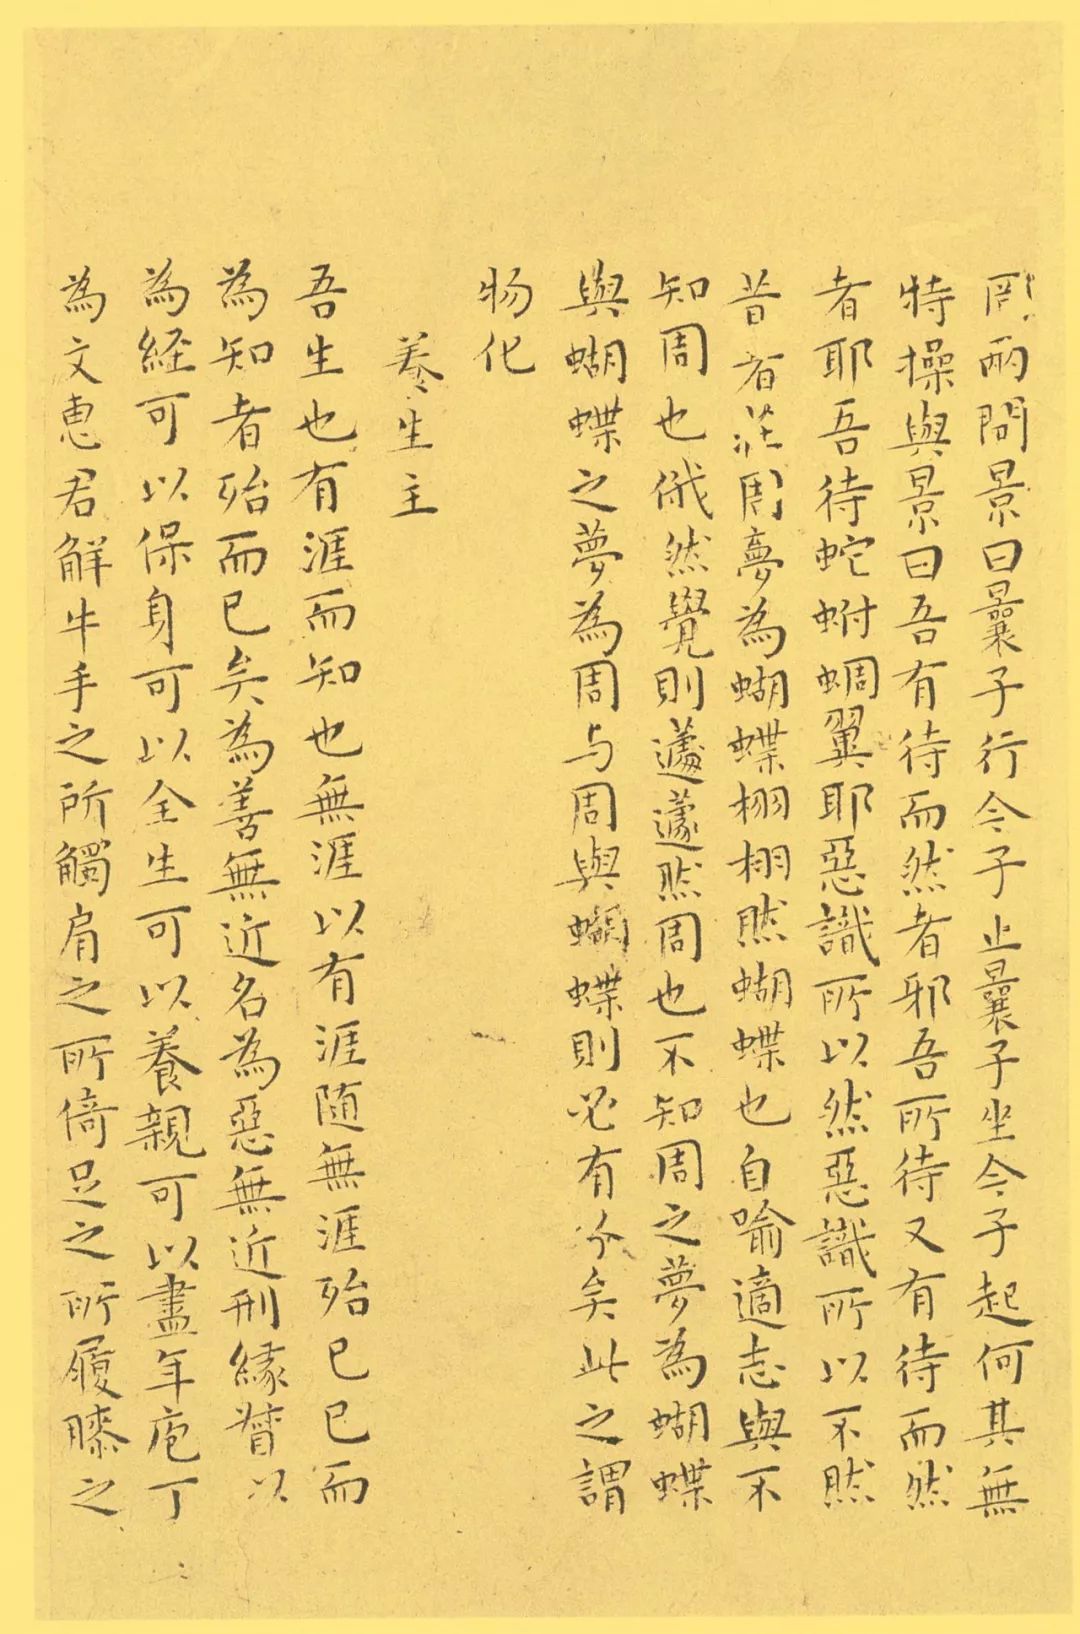 罔兩問景曰曩子行今子止曩子坐今子起何其無
特操與景曰吾有待而然者邪吾所待又有待而然
者耶吾待蛇蚹蜩翼耶惡識所以然惡識所以不然
昔者莊周夢為蝴蝶栩栩然蝴蝶也自喻適志與不
知周也俄然覺則蘧蘧然周也不知周之夢為蝴蝶
與蝴蝶之夢為周与周與蝴蝶則必有分矣此之謂
物化
養生主
吾生也有涯而知也無涯以有涯随無涯殆已已而
為知者殆而已矣為善無近名為惡無近刑緣督以
為経可以保身可以全生可以養親可以盡年庖丁
為文恵君解牛手之所觸肩之所倚足之所履膝之